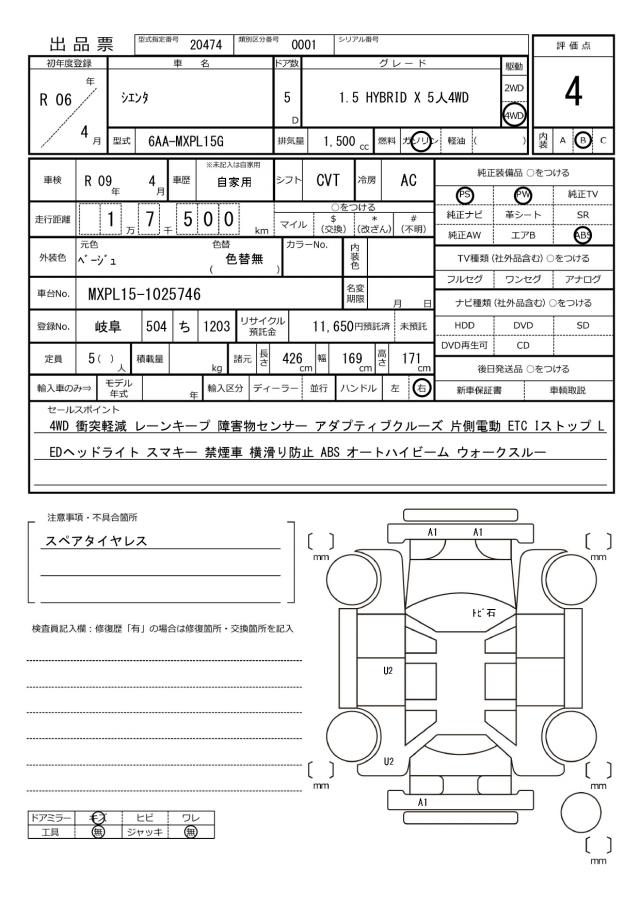 出品票
型式指定番号 20474 類別区分番号 0001 シリアル番号
評価点
4
内装 A B C
初年度登録 車名 ドア数 グレード 駆動
R 06 年 4 月
シエンタ 5 D 1.5 HYBRID X 5人4WD 2WD 4WD
型式 6AA-MXPL15G 排気量 1,500 cc 燃料 ガソリン 軽油 ( )
車検 R 09 年 4 月 車歴 ※未記入は自家用 自家用 シフト CVT 冷房 AC
走行距離 1 万 7 千 5 0 0 km
○をつける
マイル $ (交換) * (改ざん) # (不明)
外装色 元色 ベージュ 色替 ( 色替無 ) カラーNo. 内装色
車台No. MXPL15-1025746 名変期限 月 日
登録No. 岐阜 504 ち 1203 リサイクル預託金 11,650円預託済 未預託
定員 5( ) 人 積載量 kg 諸元 長さ 426 cm 幅 169 cm 高さ 171 cm
輸入車のみ⇒ モデル年式 年 輸入区分 ディーラー 並行 ハンドル 左 右
純正装備品 ○をつける
PS PW 純正TV
純正ナビ 革シート SR
純正AW エアB ABS
TV種類 (社外品含む) ○をつける
フルセグ ワンセグ アナログ
ナビ種類 (社外品含む) ○をつける
HDD DVD SD
DVD再生可 CD
後日発送品 ○をつける
新車保証書 車輌取説
セールスポイント
4WD 衝突軽減 レーンキープ 障害物センサー アダプティブクルーズ 片側電動 ETC Iストップ L
EDヘッドライト スマキー 禁煙車 横滑り防止 ABS オートハイビーム ウォークスルー
注意事項・不具合箇所
スペアタイヤレス
検査員記入欄：修復歴「有」の場合は修復箇所・交換箇所を記入
A1 A1
mm mm
トビ石
U2
U2
mm mm
A1
mm
ドアミラー キズ ヒビ ワレ
工具 無 ジャッキ 無